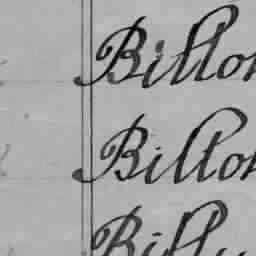 Billon
Billon
Billy